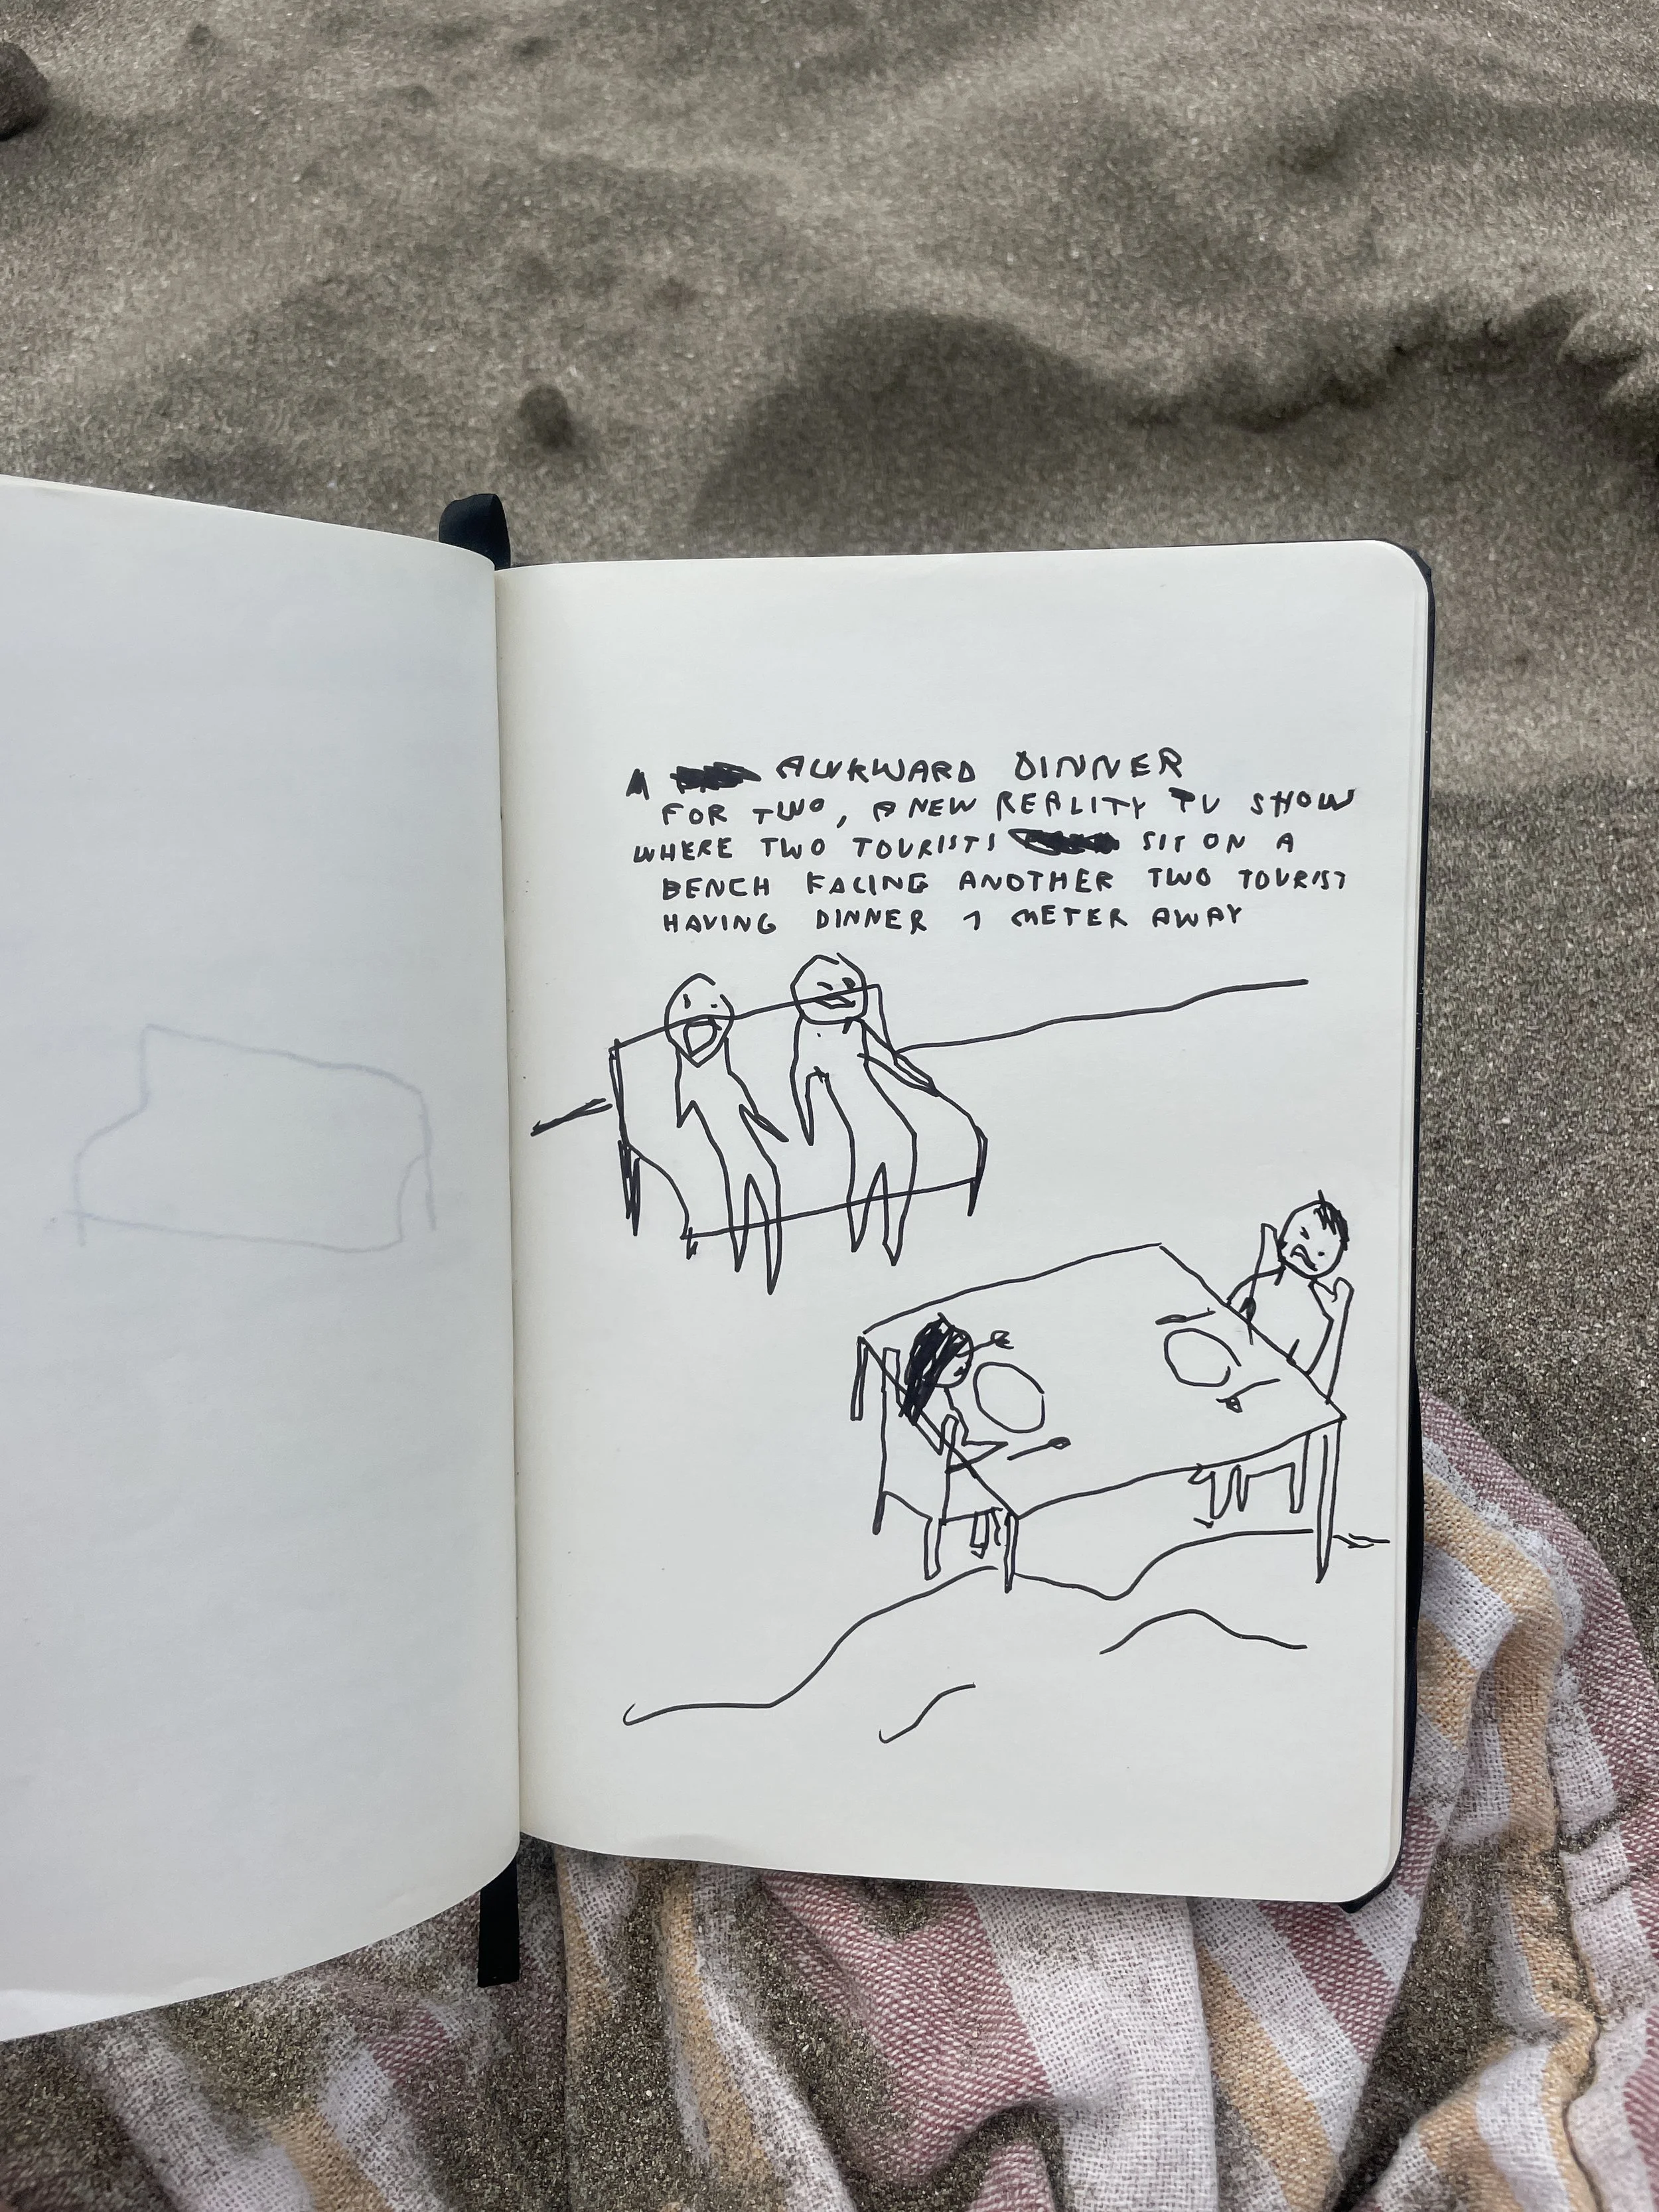 A AWKWARD DINNER
FOR TWO, A NEW REALITY TV SHOW
WHERE TWO TOURISTS SIT ON A
BENCH FACING ANOTHER TWO TOURIST
HAVING DINNER 1 METER AWAY